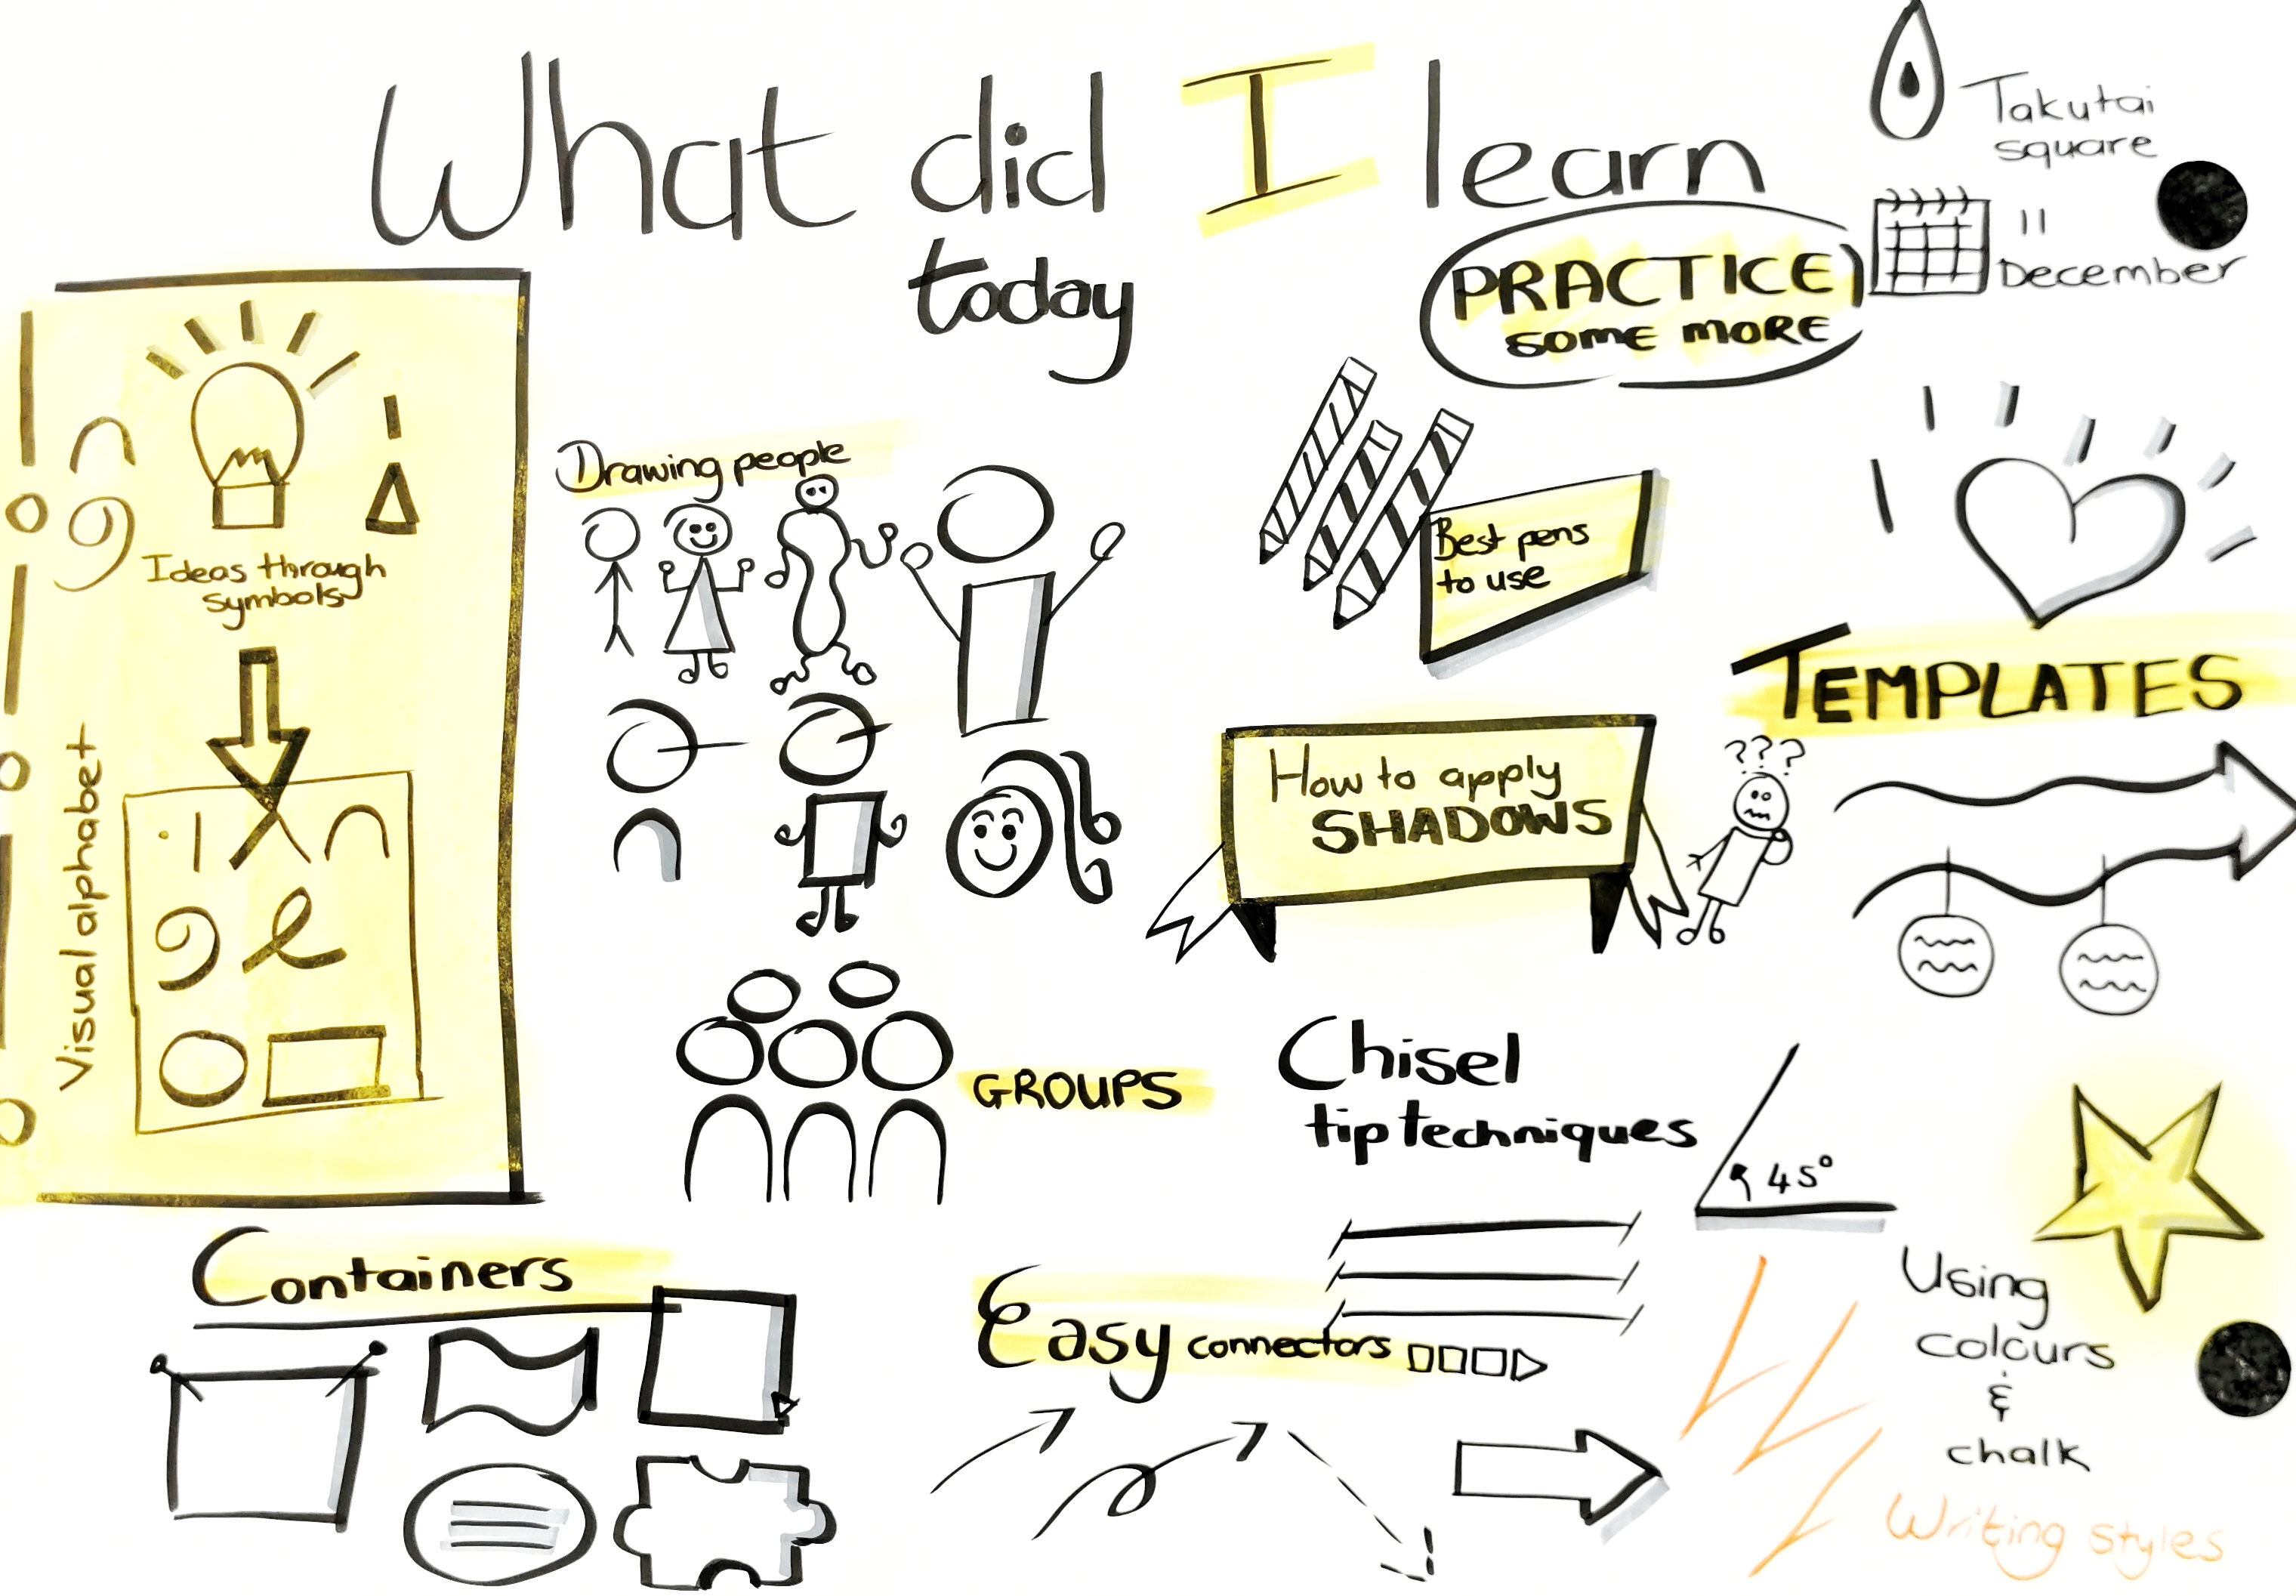 What did I learn
today
Takutai
square
11
December
PRACTICE
SOME MORE
Ideas through
symbols
Visual alphabet
Drawing people
Best pens
to use
TEMPLATES
How to apply
SHADOWS
???
GROUPS
Chisel
tip techniques
45°
Containers
Easy connectors
Using
colours
&
chalk
Writing styles